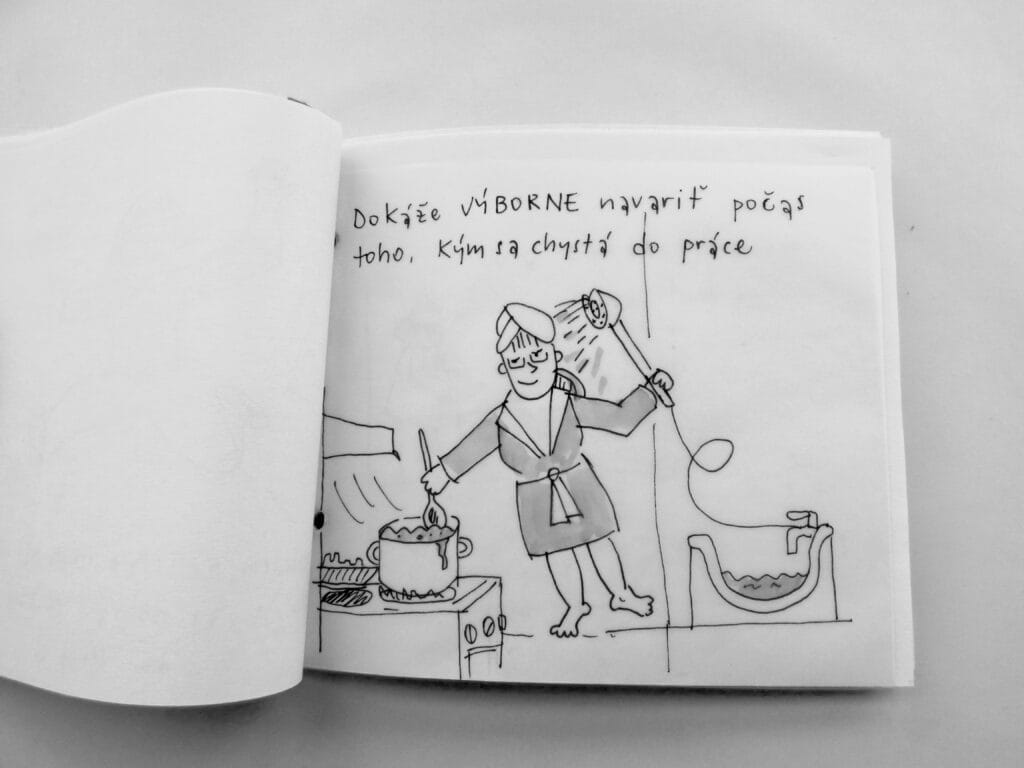 Dokáže VÝBORNE navariť počas
toho, kým sa chystá do práce